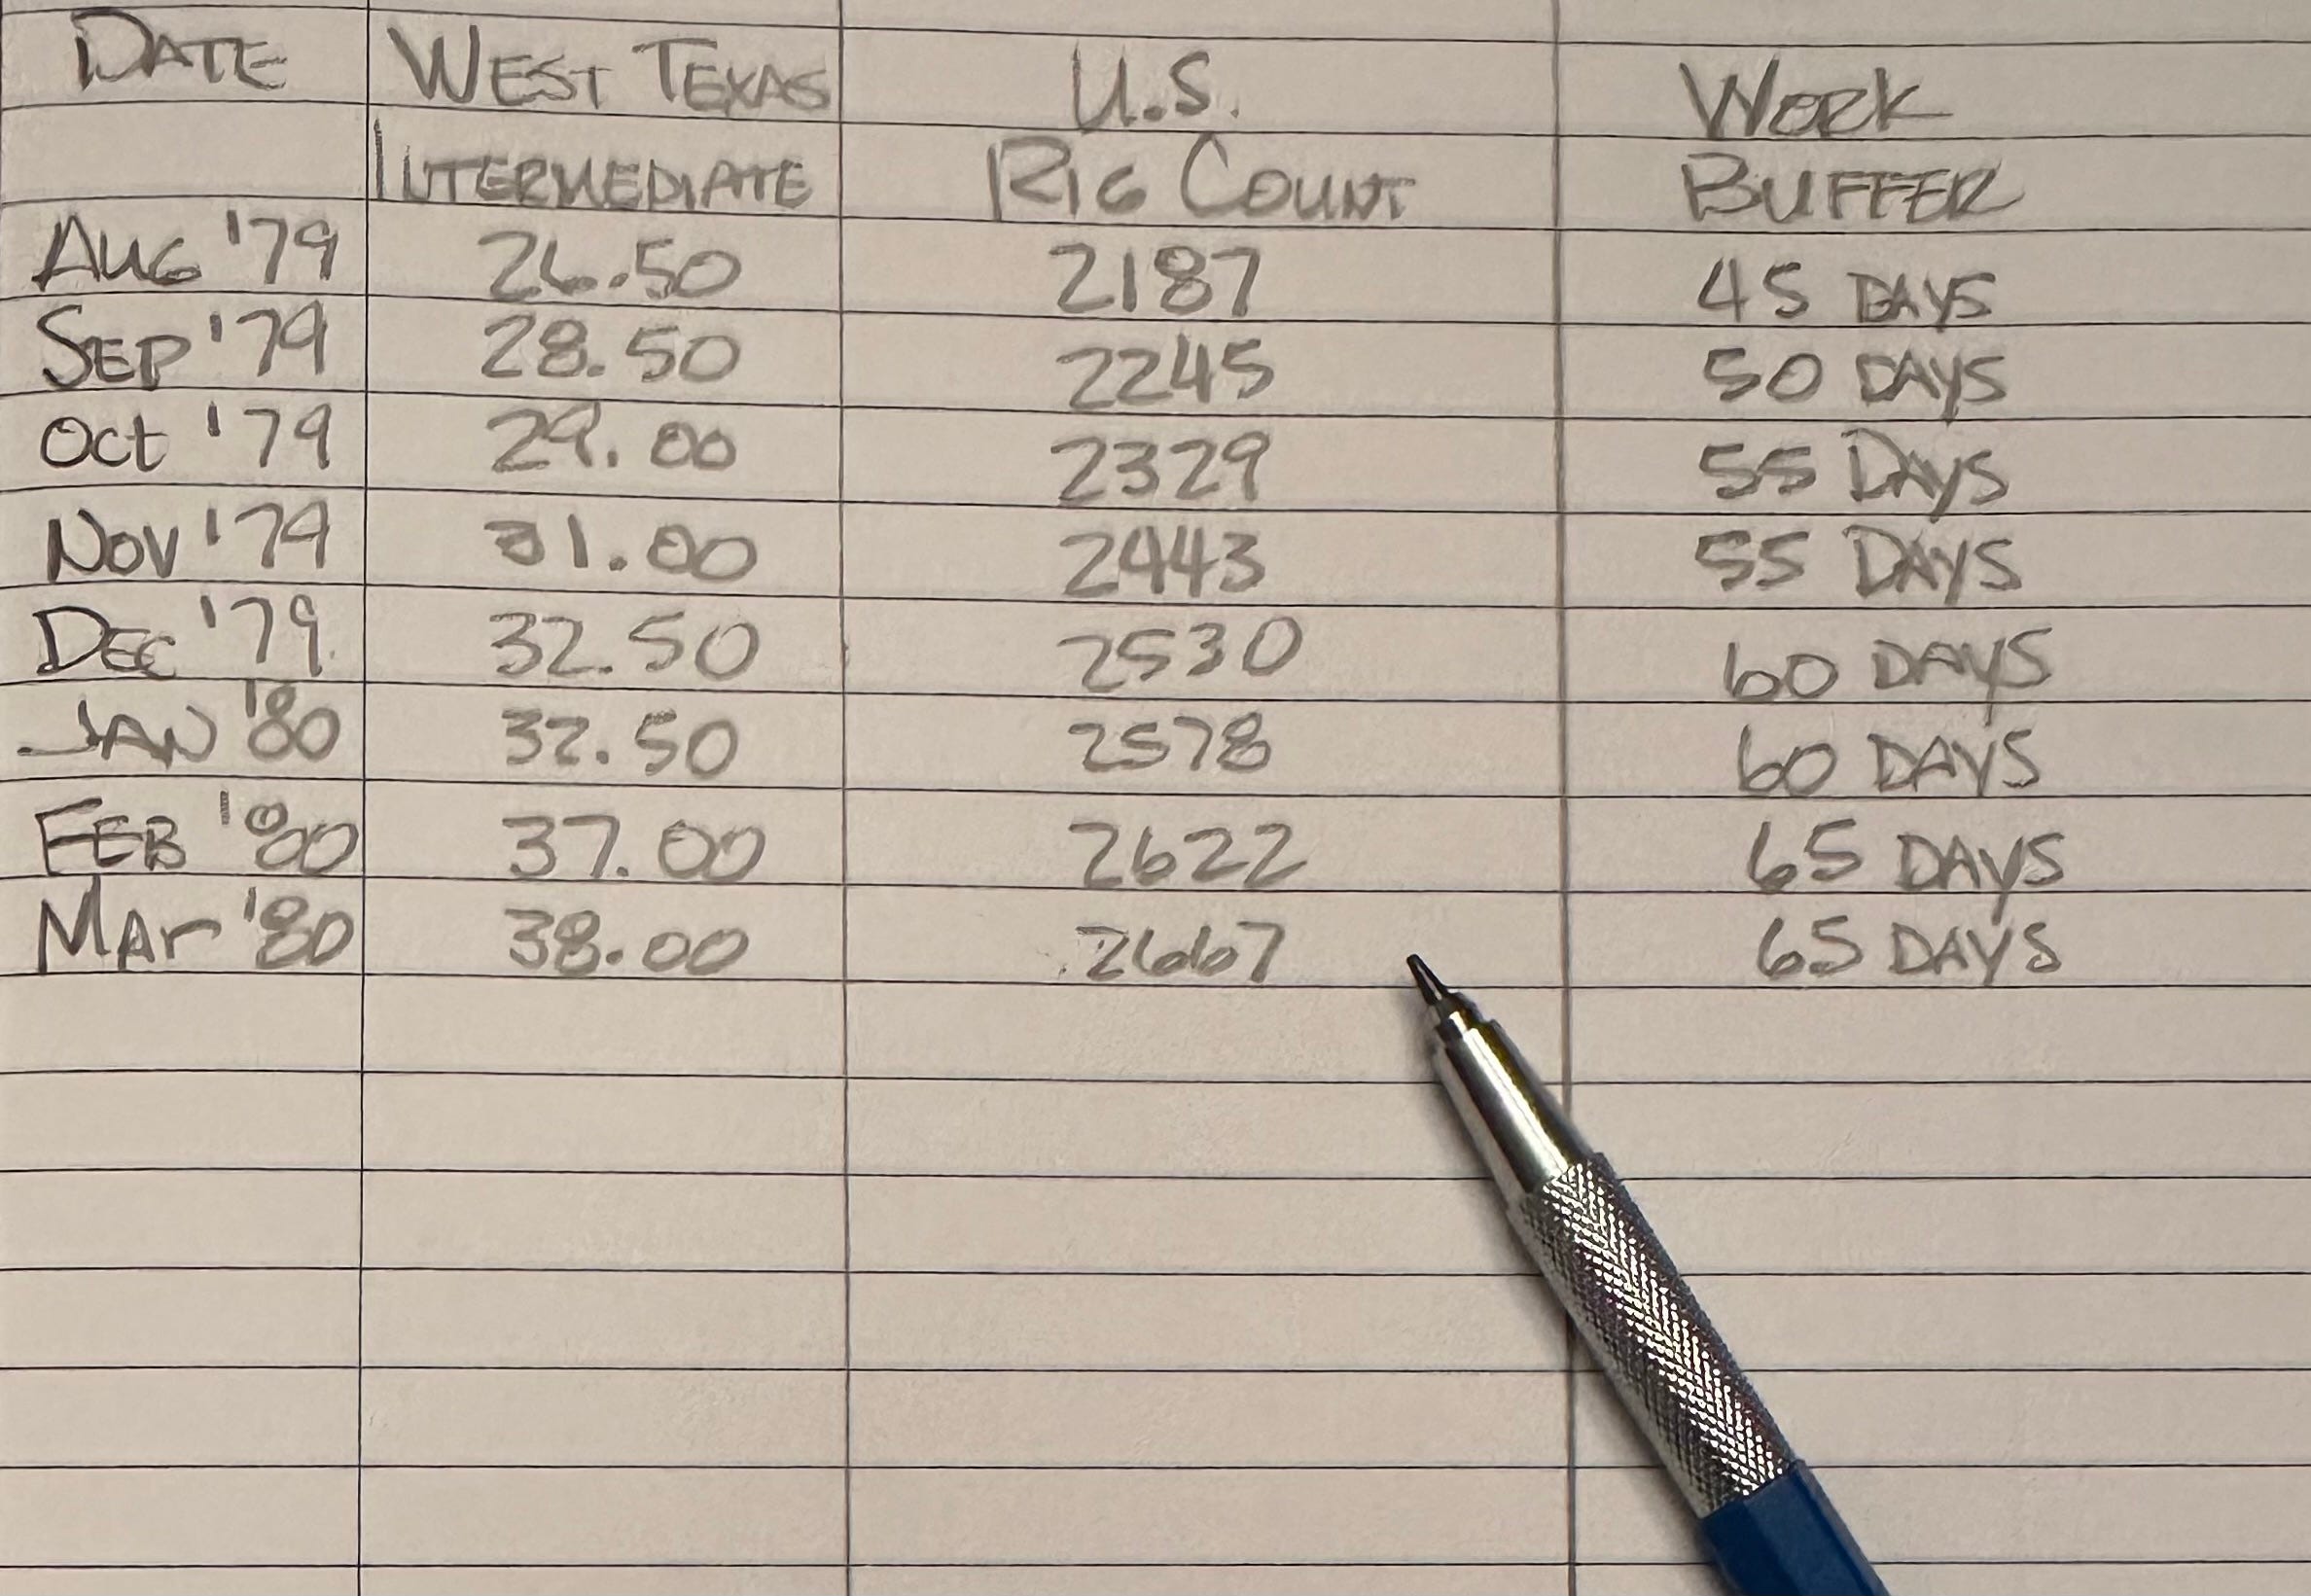 DATE WEST TEXAS U.S. WORK
INTERMEDIATE RIG COUNT BUFFER
AUG '79 26.50 2187 45 DAYS
SEP '79 28.50 2245 50 DAYS
Oct '79 29.00 2329 55 DAYS
NOV '79 31.00 2443 55 DAYS
DEC '79 32.50 2530 60 DAYS
JAN '80 32.50 2578 60 DAYS
FEB '80 37.00 2622 65 DAYS
MAr '80 38.00 2667 65 DAYS